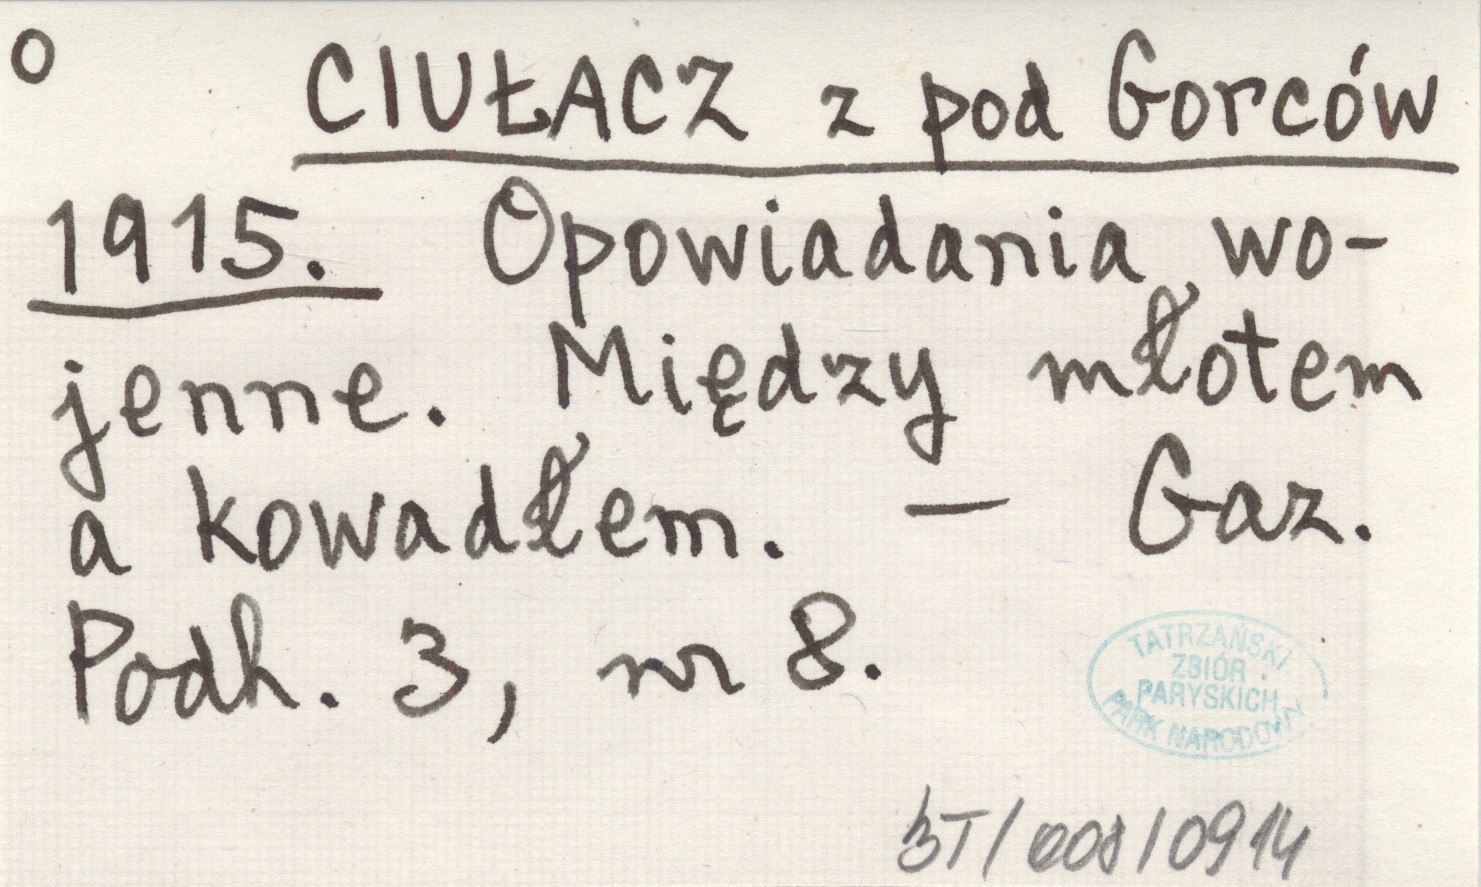 o CIUŁACZ z pod Gorców
1915. Opowiadania wo-
jenne. Między młotem
a kowadłem. — Gaz.
Podh. 3, nr 8.
TATRZAŃSKI
ZBIÓR
PARYSKICH
PARK NARODOWY
BT/008/0914